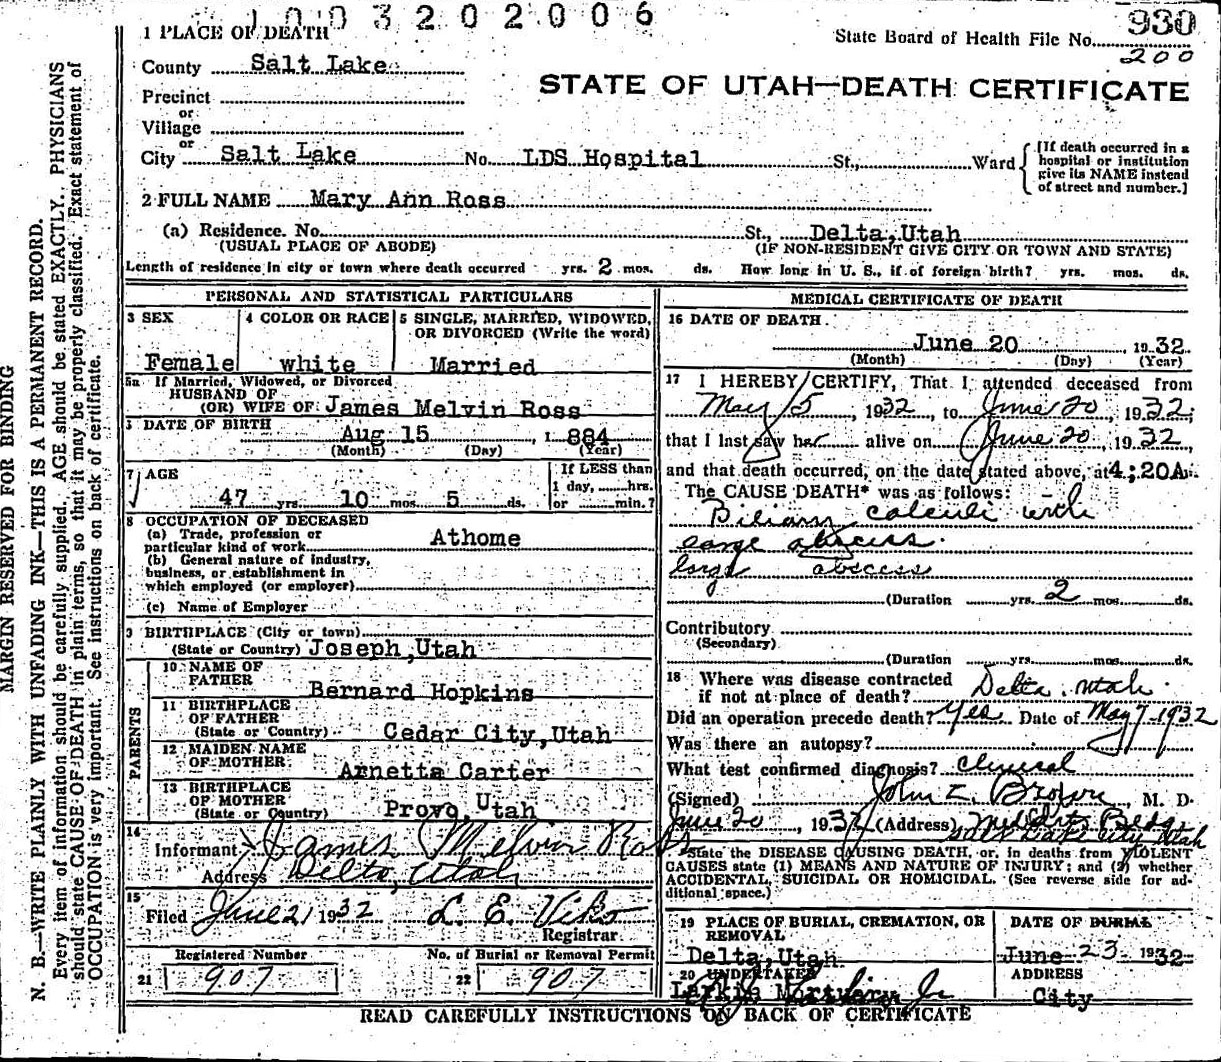 1003202006
1 PLACE OF DEATH
State Board of Health File No. 930
200
County Salt Lake
STATE OF UTAH—DEATH CERTIFICATE
Precinct
or
Village
or
City Salt Lake No. LDS Hospital St., Ward
[If death occurred in a hospital or institution give its NAME instead of street and number.]
2 FULL NAME Mary Ann Ross
(a) Residence. No. St., Delta, Utah
(USUAL PLACE OF ABODE) (IF NON-RESIDENT GIVE CITY OR TOWN AND STATE)
Length of residence in city or town where death occurred yrs. 2 mos. ds. How long in U. S., if of foreign birth? yrs. mos. ds.
PERSONAL AND STATISTICAL PARTICULARS
3 SEX
Female
4 COLOR OR RACE
white
5 SINGLE, MARRIED, WIDOWED, OR DIVORCED (Write the word)
Married
5a If Married, Widowed, or Divorced
HUSBAND OF
(OR) WIFE OF James Melvin Ross
DATE OF BIRTH
Aug 15, 1884
(Month) (Day) (Year)
7 AGE
47 yrs. 10 mos 5 ds.
If LESS than
1 day, hrs.
or min.?
8 OCCUPATION OF DECEASED
(a) Trade, profession or
particular kind of work Athome
(b) General nature of industry,
business, or establishment in
which employed (or employer)
(c) Name of Employer
9 BIRTHPLACE (City or town)
(State or Country) Joseph, Utah
PARENTS
10 NAME OF
FATHER
Bernard Hopkins
11 BIRTHPLACE
OF FATHER
(State or Country) Cedar City, Utah
12 MAIDEN NAME
OF MOTHER
Arnetta Carter
13 BIRTHPLACE
OF MOTHER
(State or Country) Provo, Utah
14
Informant James Melvin Ross
Address Delta, Utah
15
Filed June 21 1932 L. E. Viko
Registrar
Registered Number
21 907
No. of Burial or Removal Permit
22 907
MEDICAL CERTIFICATE OF DEATH
16 DATE OF DEATH
June 20, 1932
(Month) (Day) (Year)
17 I HEREBY CERTIFY, That I attended deceased from
May 5, 1932, to June 20, 1932;
that I last saw her alive on June 20, 1932,
and that death occurred, on the date stated above, at 4;20A.
The CAUSE DEATH* was as follows:
Biliary calculi with
large abscess.
large abscess
(Duration yrs. 2 mos ds.
Contributory
(Secondary)
(Duration yrs. mos. ds.
18 Where was disease contracted
if not at place of death? Delta, Utah.
Did an operation precede death? Yes Date of May 7-1932
Was there an autopsy?
What test confirmed diagnosis? Clinical
(Signed) John Z. Brown, M. D.
June 20, 1932 (Address) Bldg
Salt Lake City Utah
*State the DISEASE CAUSING DEATH, or, in deaths from VIOLENT
CAUSES state (1) MEANS AND NATURE OF INJURY; and (2) whether
ACCIDENTAL, SUICIDAL OR HOMICIDAL. (See reverse side for additional space.)
19 PLACE OF BURIAL, CREMATION, OR
REMOVAL
Delta, Utah
DATE OF BURIAL
June 23 1932
20 UNDERTAKER
Larkin Mortuary
ADDRESS
City
READ CAREFULLY INSTRUCTIONS ON BACK OF CERTIFICATE
MARGIN RESERVED FOR BINDING
N. B.—WRITE PLAINLY WITH UNFADING INK—THIS IS A PERMANENT RECORD.
Every item of information should be carefully supplied. AGE should be stated EXACTLY. PHYSICIANS
should state CAUSE OF DEATH in plain terms, so that it may be properly classified. Exact statement of
OCCUPATION is very important. See instructions on back of certificate.